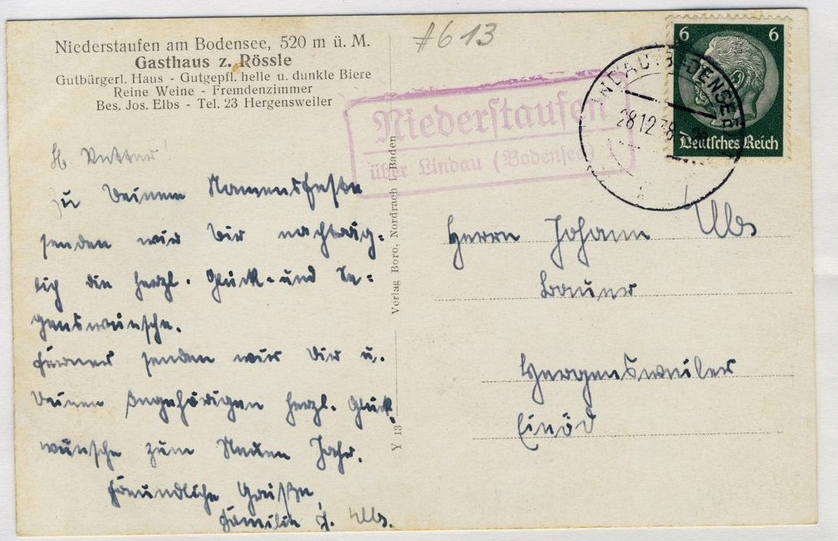 Niederstaufen am Bodensee, 520 m ü. M.
Gasthaus z. Rössle
Gutbürgerl. Haus - Gutgepfl. helle u. dunkle Biere
Reine Weine - Fremdenzimmer
Bes. Jos. Elbs - Tel. 23 Hergensweiler
#613
Niederstaufen
über Lindau (Bodensee)
LINDAU (BODENSEE)
28.12.38
6 6
Deutsches Reich
Zu Deinem Namensfeste
senden wir Dir nachträg-
lich die herzl. Glück- und Se-
genswünsche.
Ferner senden wir Dir u.
Deinen Angehörigen herzl. Glück
wünsche zum Neuen Jahr.
Freundliche Grüße
Familie J. Elbs.
Verlag Boro, Nordrach i. Baden
Y 13
Herrn Johann Elbs
Bauer
Hergensweiler
Einöd